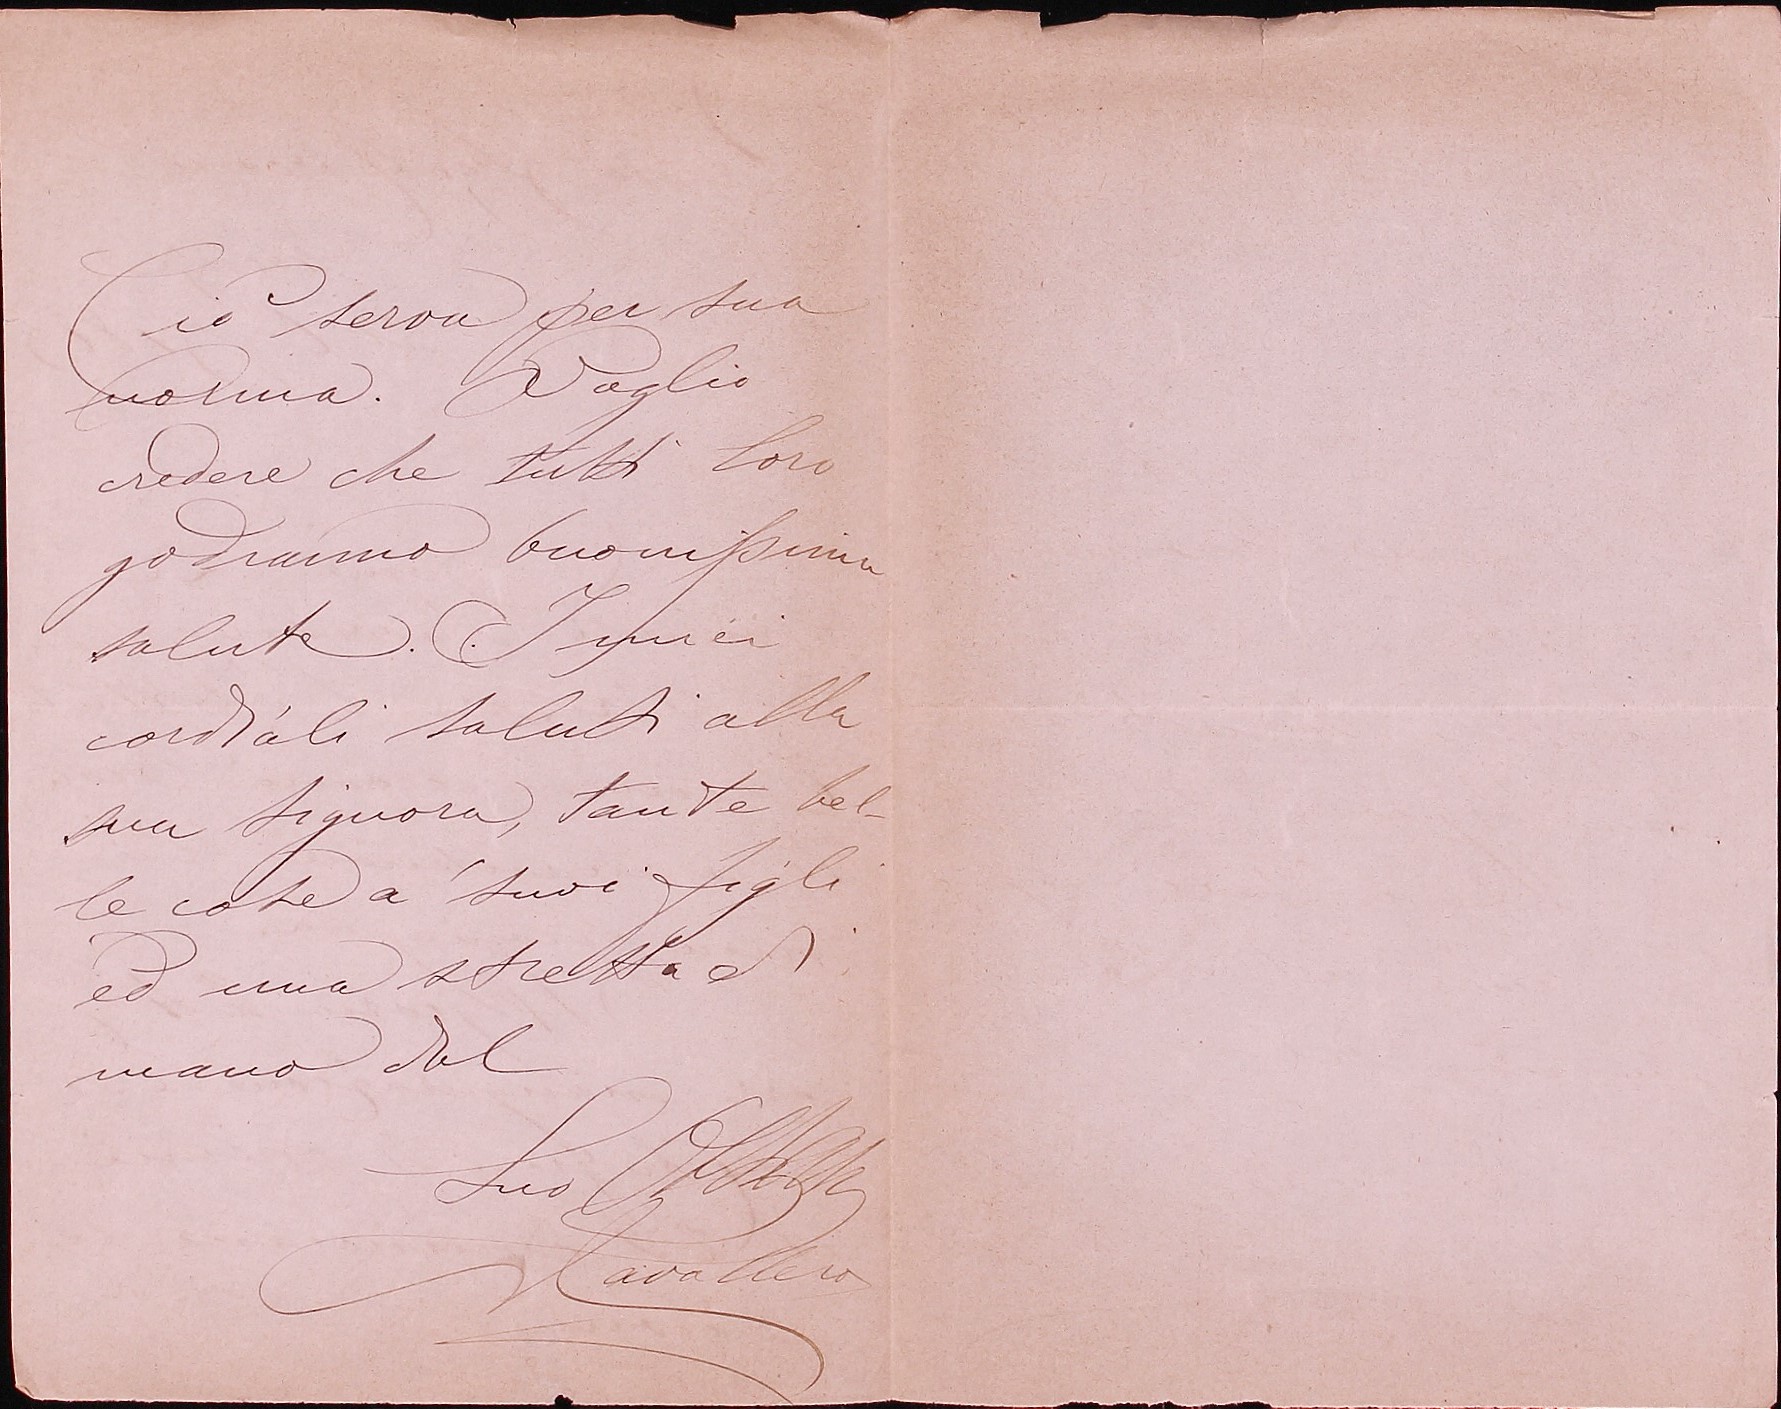 Ciò serva per sua
norma. Voglio
credere che tutti loro
godranno buonissima
salute. I miei
cordiali saluti alla
sua signora, tante bel-
le cose a' suoi figli
ed una stretta di
mano dal
Suo
Cavallero